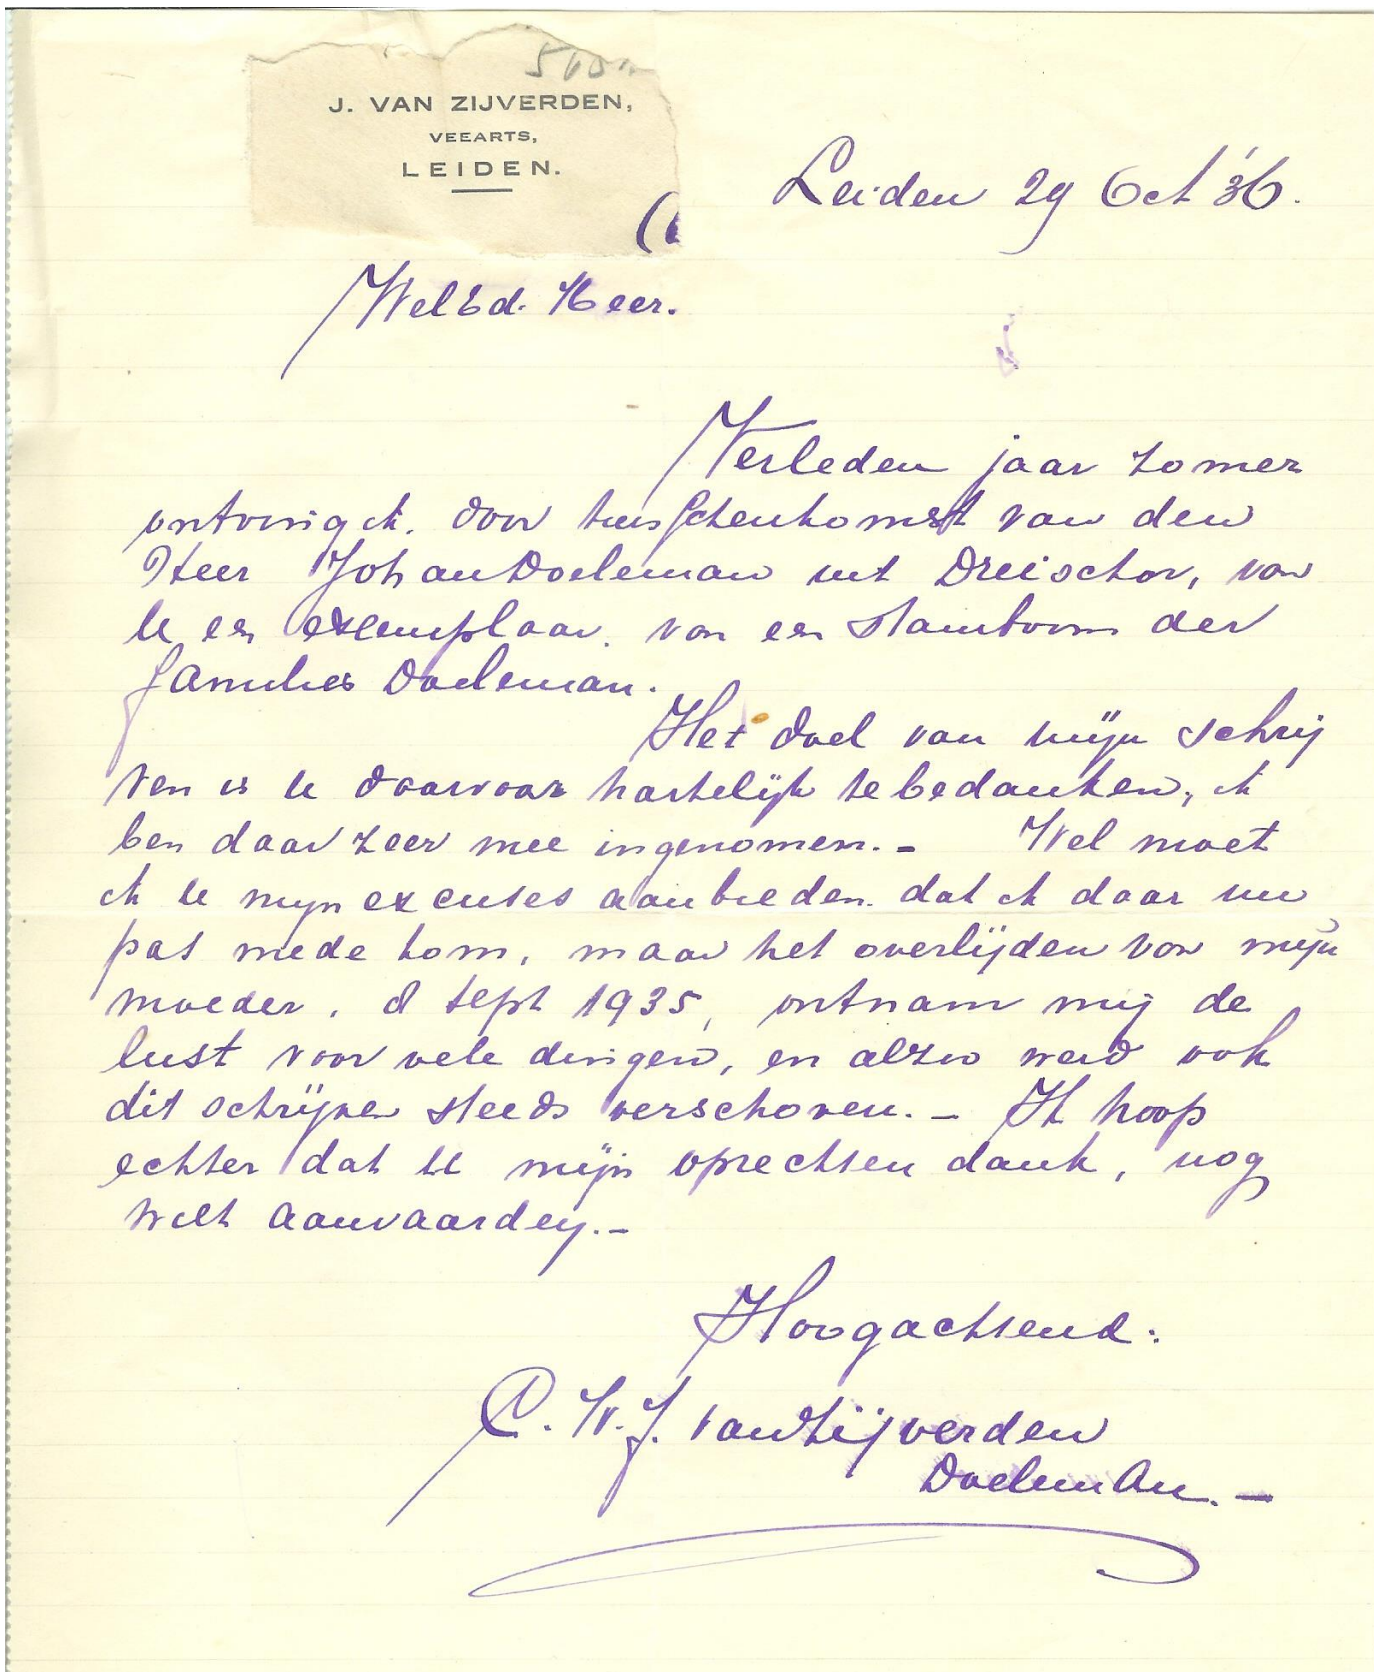 J. VAN ZIJVERDEN,
VEEARTS,
LEIDEN.
Leiden 29 Oct '36.
WelEd. Heer.
Verleden jaar zomer
ontving ik. door tusschenkomst van den
Heer Johan Doeleman uit Dreischor, van
U een exemplaar. van een stamboom der
families Doeleman.
Het doel van mijn schrij
ven is U daarvoor hartelijk te bedanken, ik
ben daar zeer mee ingenomen. - Wel moet
ik U mijn excuses aanbieden. dat ik daar nu
pas mede kom, maar het overlijden van mijn
moeder, 8 Sept 1935, ontnam mij de
lust voor vele dingen, en alzoo werd ook
dit schrijven steeds verschoven. - Ik hoop
echter dat U mijn oprechten dank, nog
wilt aanvaarden. -
Hoogachtend:
C. W. J. van Zijverden
Doeleman. -